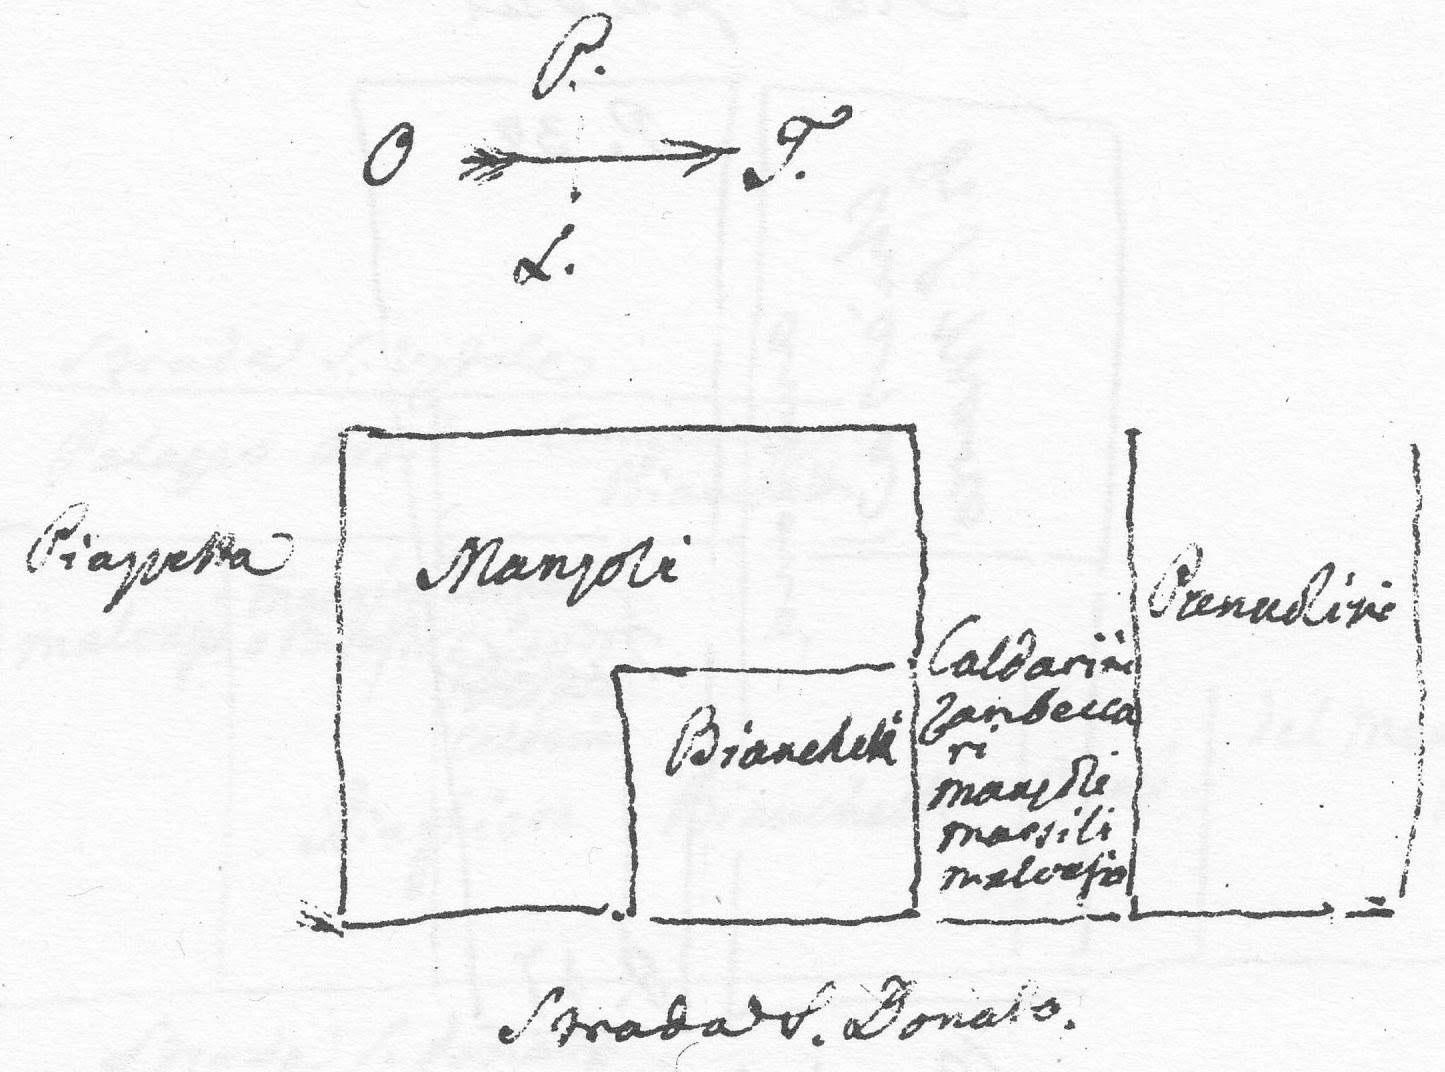 P.
O T.
L.
Piazzetta
Manzoli
Bianchetti
Caldarini
Zanbecca
ri
manzoli
marsili
malvasia
Strada S. Donato.